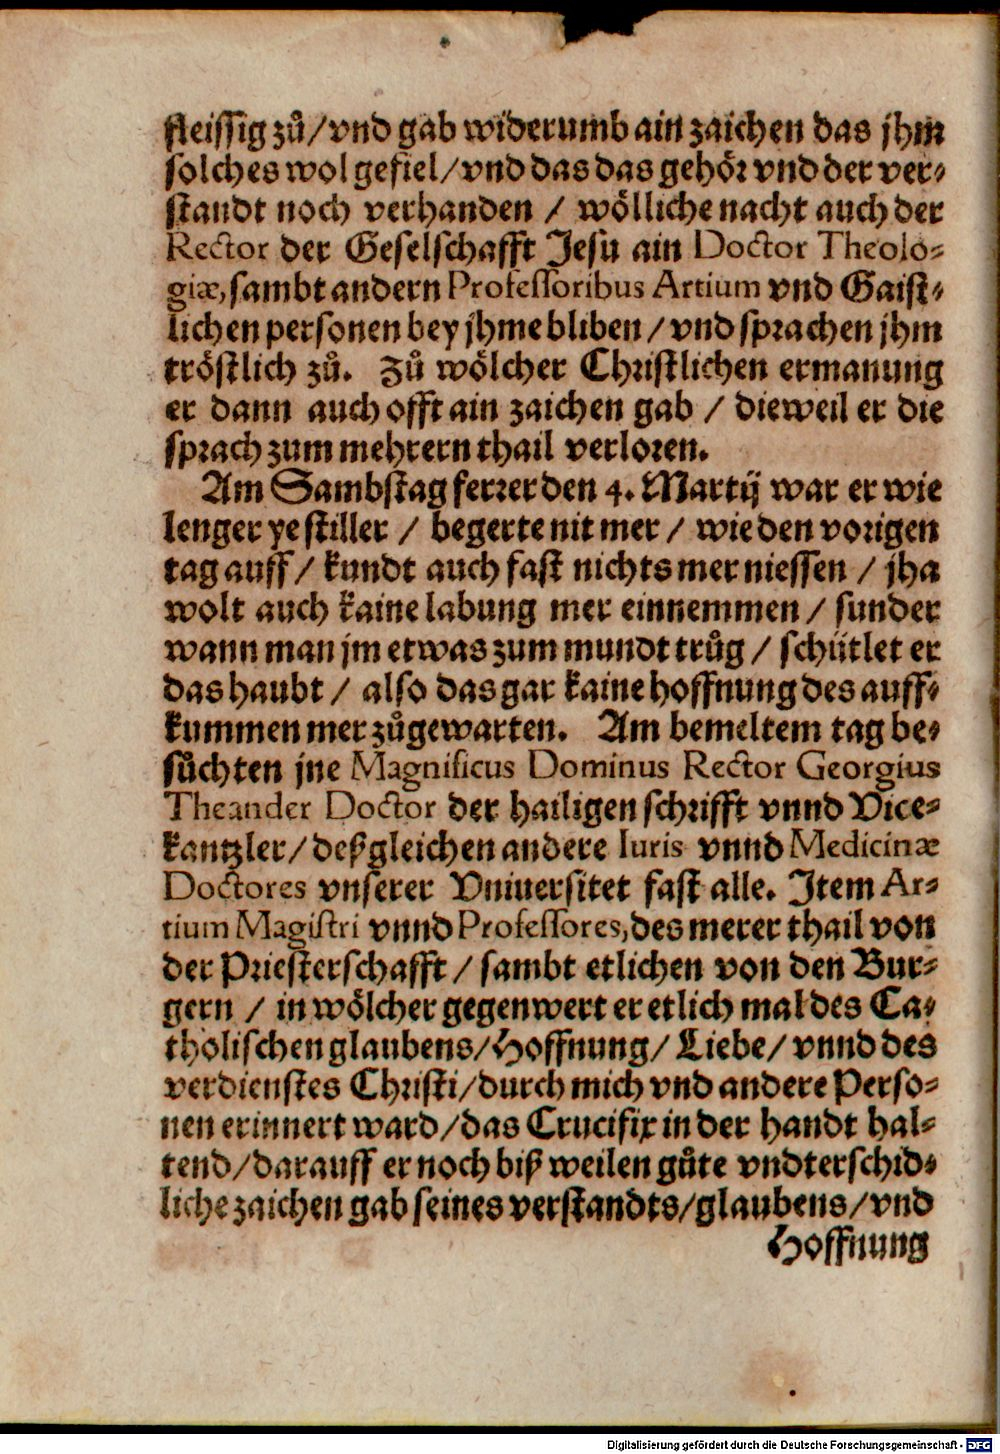 fleissig zů/vnd gab widerumb ain zaichen das jhm
solches wol gefiel/vnd das das gehör vnd der ver-
standt noch verhanden / wölliche nacht auch der
Rector der Geselschafft Jesu ain Doctor Theolo-
giæ, sambt andern Professoribus Artium vnd Gaist-
lichen personen bey jhme bliben/vnd sprachen jhm
tröstlich zů. Zů wölcher Christlichen ermanung
er dann auch offt ain zaichen gab / dieweil er die
sprach zum mehrern thail verloren.
Am Sambstag ferrer den 4. Martij war er wie
lenger ye stiller / begerte nit mer / wie den vorigen
tag auff / kundt auch fast nichts mer niessen / jha
wolt auch kaine labung mer einnemmen / sunder
wann man jm etwas zum mundt trůg / schütlet er
das haubt / also das gar kaine hoffnung des auff-
kummen mer zůgewarten. Am bemeltem tag be-
sůchten jne Magnificus Dominus Rector Georgius
Theander Doctor der hailigen schrifft vnnd Vice-
kantzler/deßgleichen andere Iuris vnnd Medicinæ
Doctores vnserer Vniuersitet fast alle. Item Ar-
tium Magistri vnnd Professores, des merer thail von
der Priesterschafft / sambt etlichen von den Bur-
gern / in wölcher gegenwert er etlich mal des Ca-
tholischen glaubens/Hoffnung/Liebe/vnnd des
verdienstes Christi/durch mich vnd andere Perso-
nen erinnert ward/das Crucifix in der handt hal-
tend/darauff er noch biß weilen gůte vndterschid-
liche zaichen gab seines verstandts/glaubens/vnd
Hoffnung
Digitalisierung gefördert durch die Deutsche Forschungsgemeinschaft - DFG